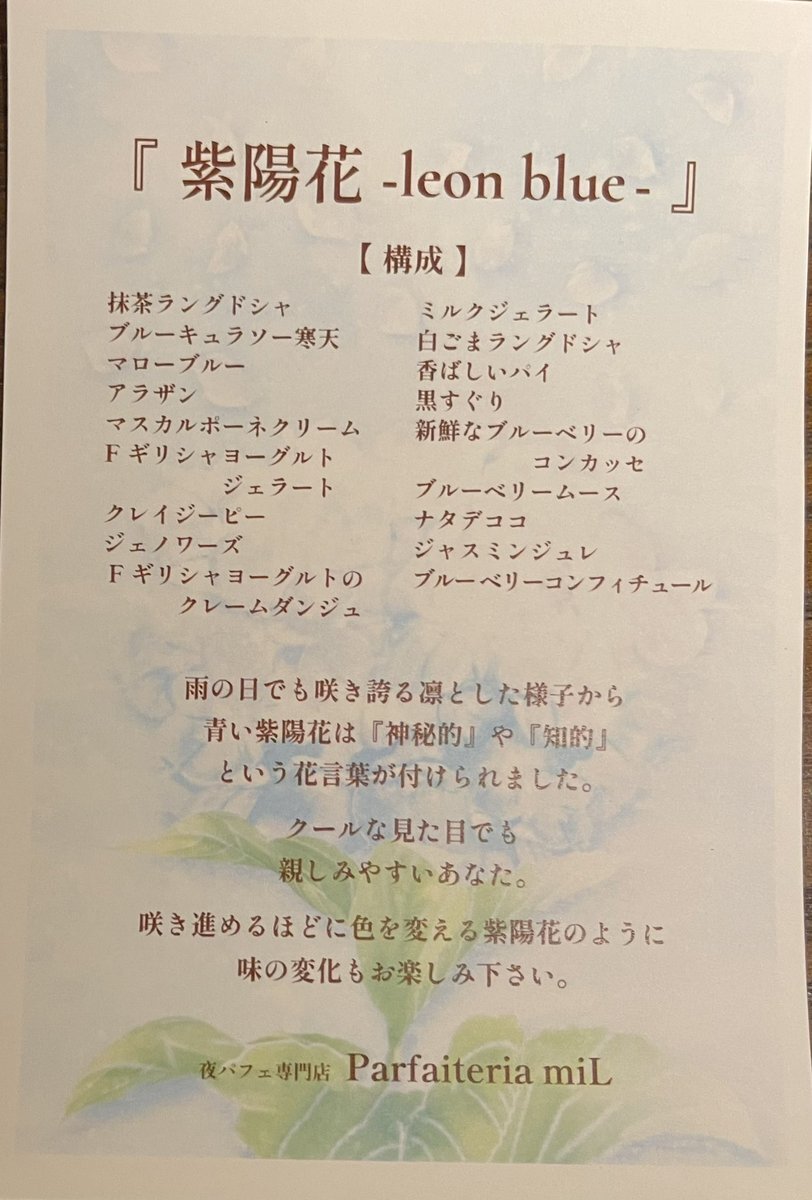 『 紫陽花 -leon blue- 』
【 構成 】
抹茶ラングドシャ
ブルーキュラソー寒天
マローブルー
アラザン
マスカルポーネクリーム
Fギリシャヨーグルト
ジェラート
クレイジーピー
ジェノワーズ
Fギリシャヨーグルトの
クレームダンジュ
ミルクジェラート
白ごまラングドシャ
香ばしいパイ
黒すぐり
新鮮なブルーベリーの
コンカッセ
ブルーベリームース
ナタデココ
ジャスミンジュレ
ブルーベリーコンフィチュール
雨の日でも咲き誇る凛とした様子から
青い紫陽花は『神秘的』や『知的』
という花言葉が付けられました。
クールな見た目でも
親しみやすいあなた。
咲き進めるほどに色を変える紫陽花のように
味の変化もお楽しみ下さい。
夜パフェ専門店 Parfaiteria miL